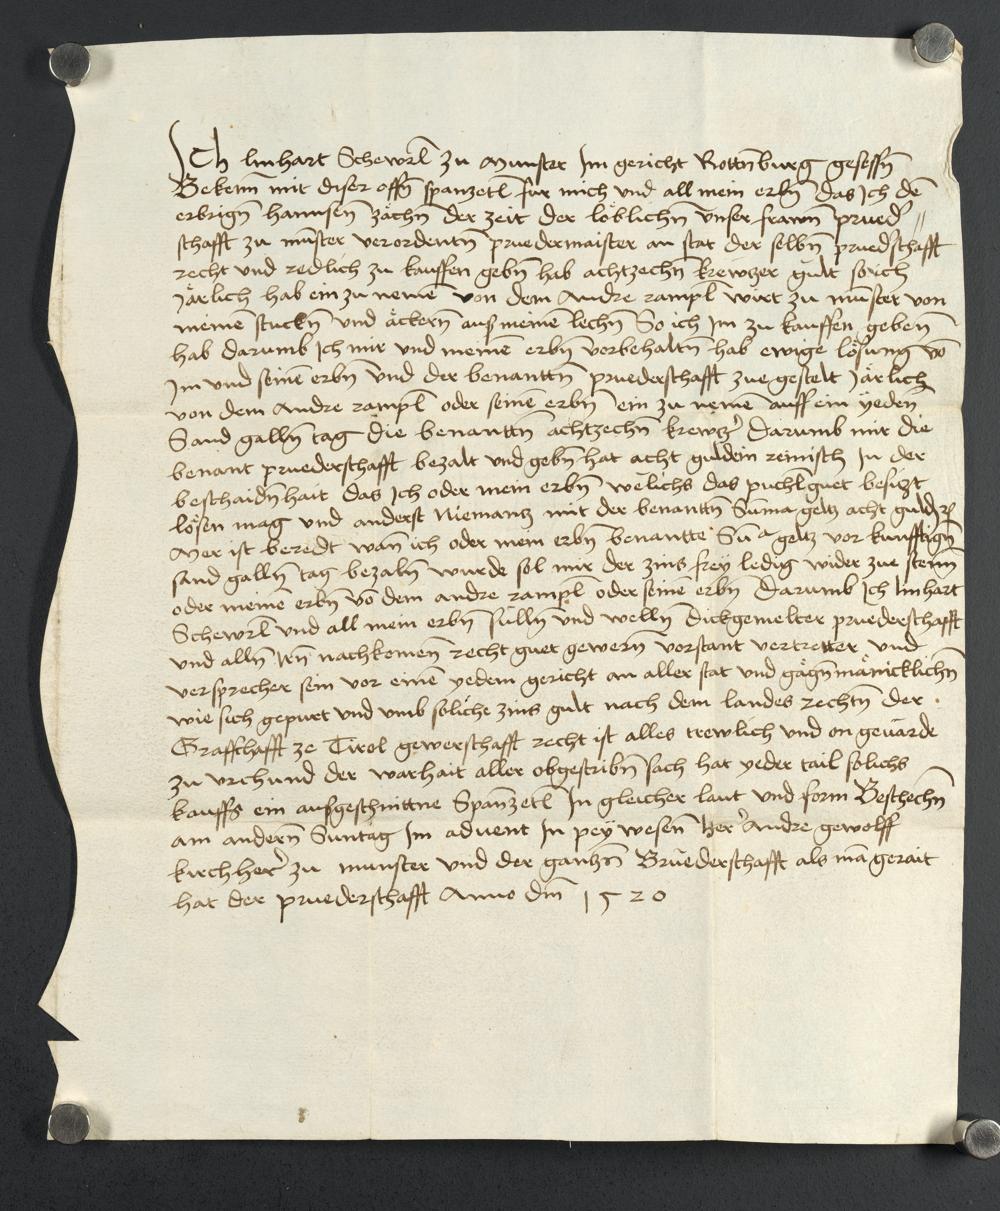 Ich linhart Schewrl zu Munster Im gericht Rottnburg gesessn̄
Bekenn mit diser offn̄ spanzetl für mich und all mein erbn̄ das Ich dē
erbrign̄ hannsen zächn̄ der zeit der löblichn̄ unser frawn prued
schafft zu mūster verordentn̄ pruedermaister an stat der selbn̄ pruedschafft
recht und redlich zu kauffen gebn̄ hab achtzechn̄ krewtzer gült so ich
Järlich hab ein zu nemē von dem Andre rampl wirt zu mūster von
meinē stuckn̄ und äckern̄ auß meinē lechn̄ So ich Im zu kauffen geben̄
hab darumb Ich mir und meinē erbn̄ vorbehaltn̄ hab ewige lösung vō
Im und seinē erbn̄ und der benanttn̄ pruederschafft zue gestelt Järlich
von dem Andre rampl oder seinē erbn̄ ein zu nemē auff ein yeden̄
Sand galln̄ tag die benanttn̄ achtzechn̄ krewtz Darumb mir die
benant pruederschafft bezalt und gebn̄ hat acht guldein reinisch In der
beschaidn̄hait das Ich oder mein erbn̄ welichs das puchl guet besizt
lösen mag und anderst Niemantz mit der benanttn̄ Sūma geltz acht guld
Mer ist beredt wan̄ ich oder mein erbn̄ benantte Sūa geltz vor kunfftign̄
sand galln̄ tag bezaln̄ wurde sol mir der zins frey ledig wider zue stenn̄
oder meinē erbn̄ vō dem andre rampl oder seinē erbn̄ Darumb Ich linhart
Schewrl und all mein erbn̄ sülln̄ und welln̄ Dickgemelter pruederschafft
und alln̄ Irn̄ nachkomen̄ recht guet gewern̄ vorstant vertretter und
versprecher sein vor einē yedem gericht an aller stat und gägn̄ mänicklichn̄
wie sich gepurt und umb söliche zins gült nach dem landes rechtn̄ der
Graffschafft ze Tirol gewerschafft recht ist alles trewlich und on gevärde
zu urchund der warhait aller obgeschribn̄ sach hat yeder tail solichs
kauffs ein außgeschnittne Spanzetl In gleicher laut und form Beschechn̄
am andern̄ Suntag Im advent In pey wesen̄ her Andre gewolff
kirchher zu munster und der gantzn̄ Brüederschafft als mā gerait
hat der pruederschafft Anno dm̄ 1520